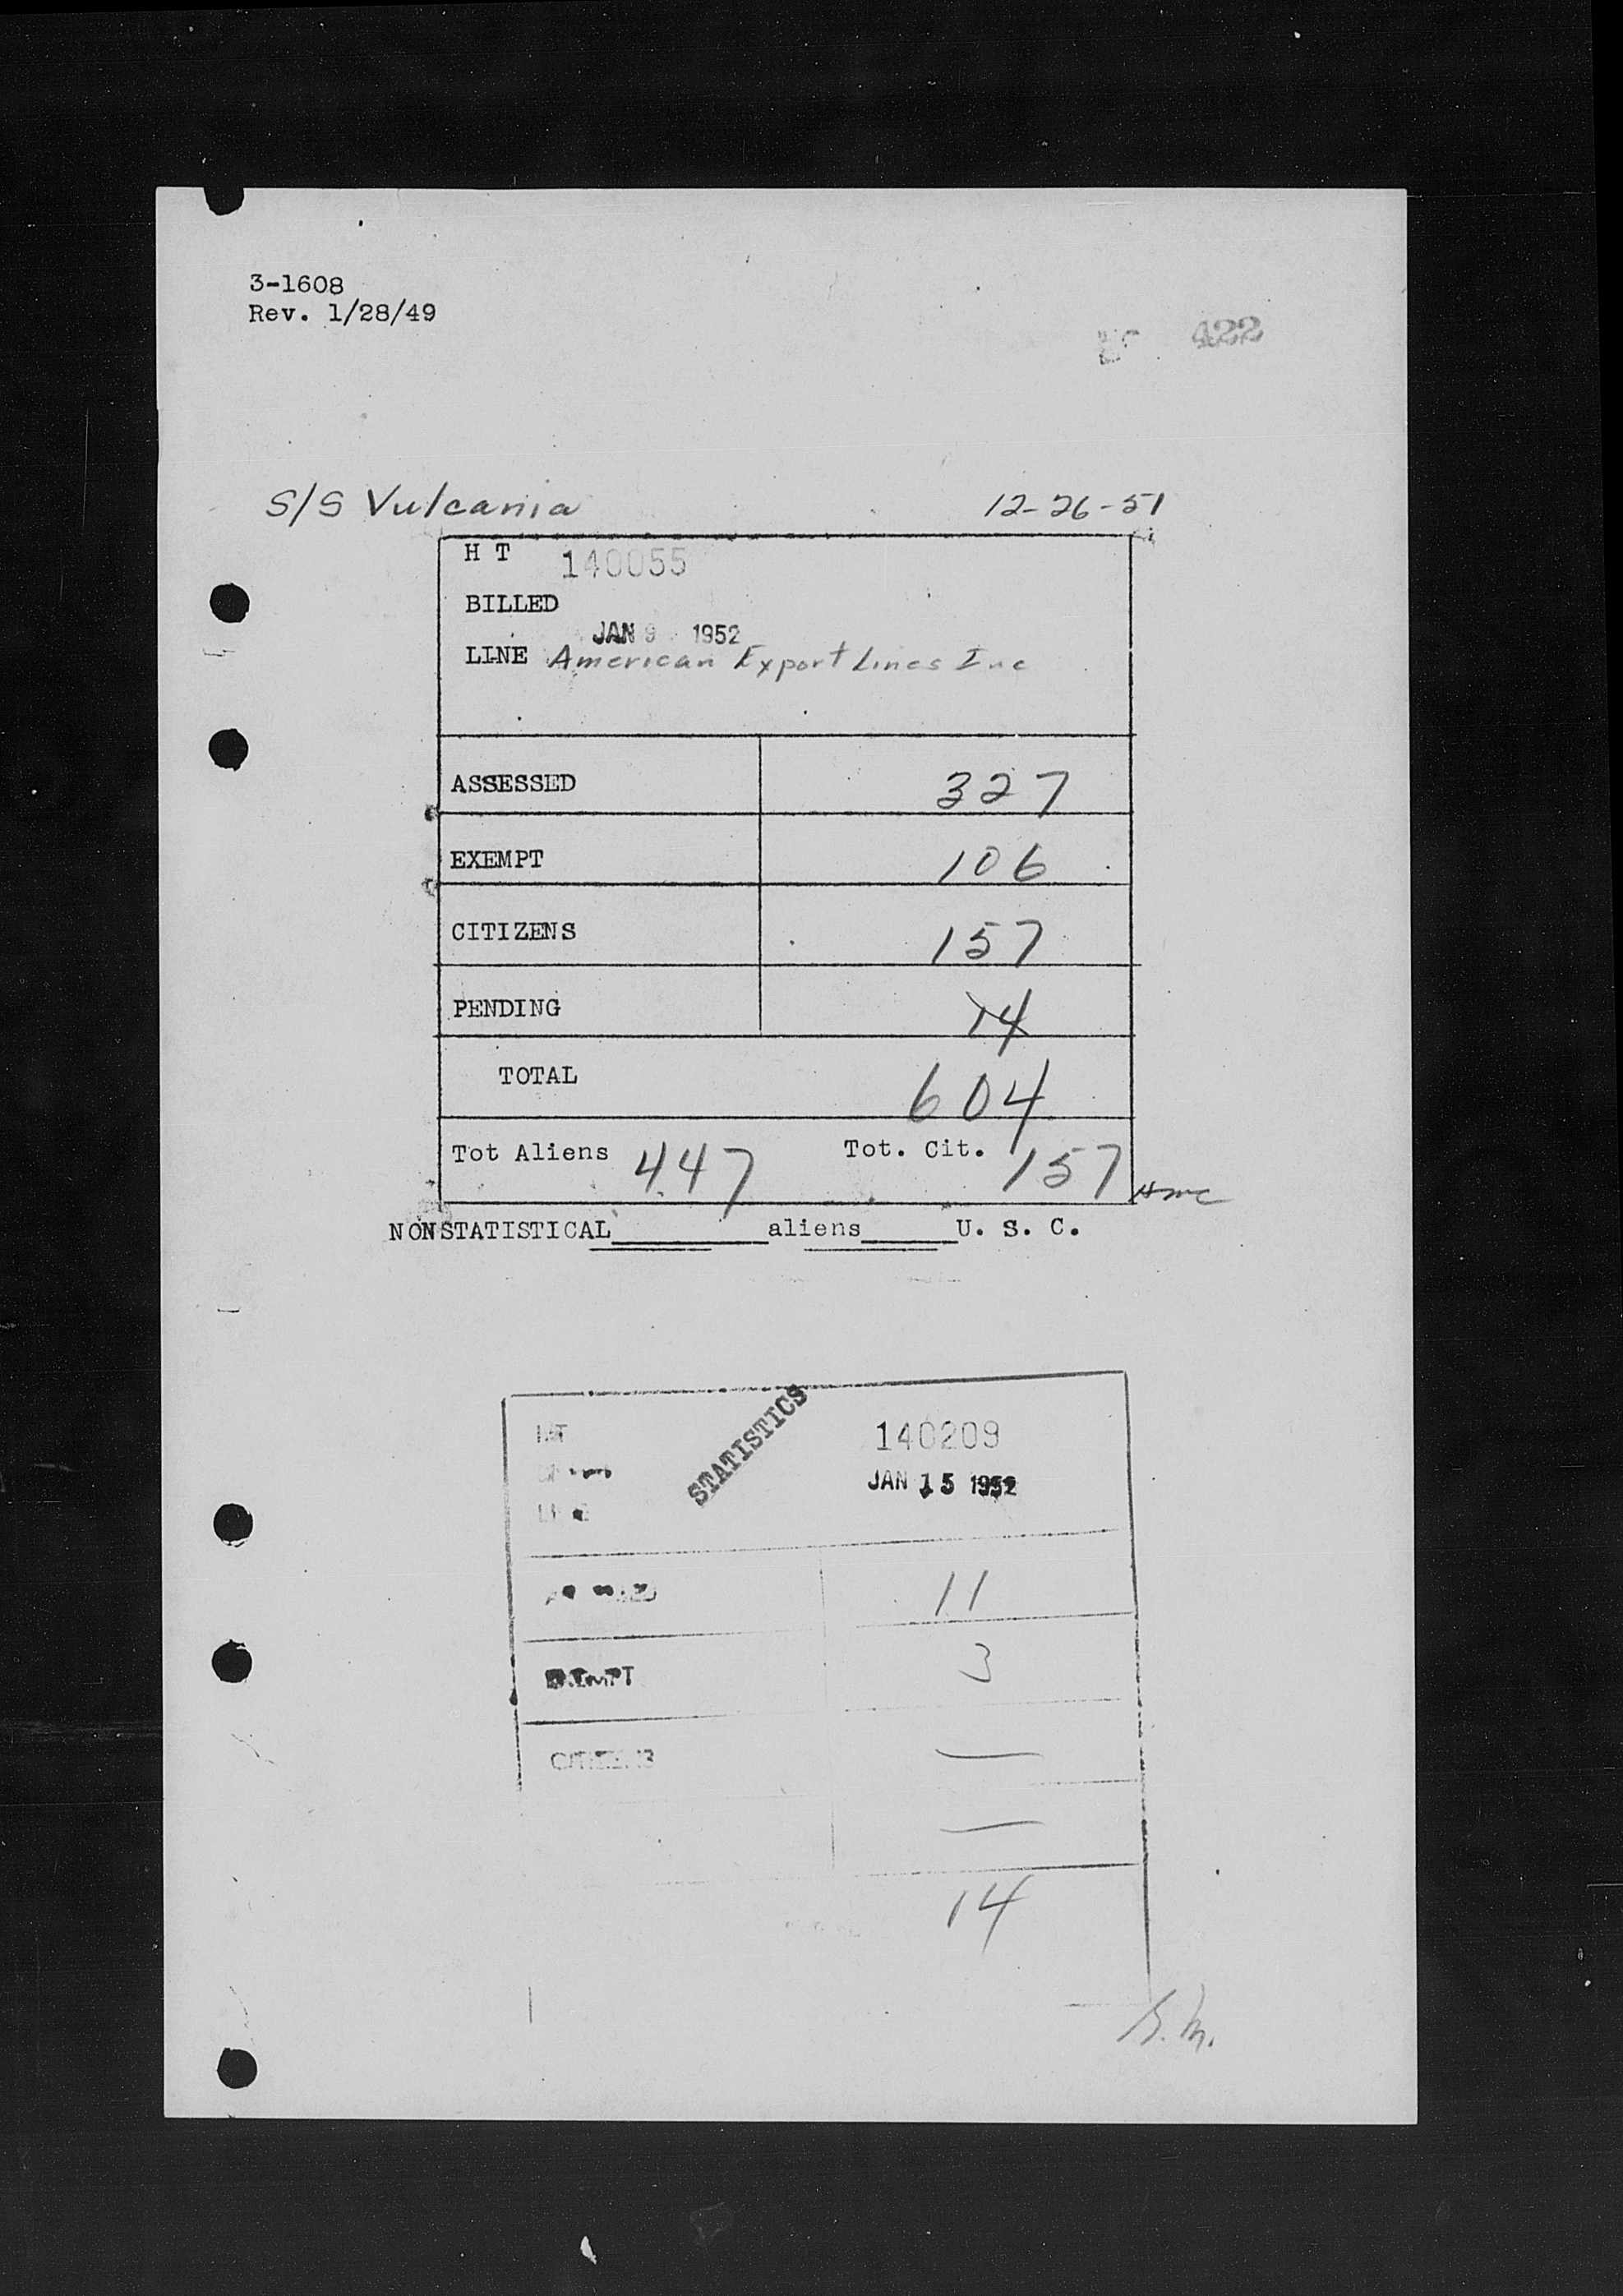 3-1608
Rev. 1/28/49
422
S/S Vulcania 12-26-51
H T 140055
BILLED
JAN 9 1952
LINE American Export Lines Inc
ASSESSED 327
EXEMPT 106
CITIZENS 157
PENDING 14
TOTAL 604
Tot Aliens 447 Tot. Cit. 157
NONSTATISTICAL aliens U. S. C.
STATISTICS
140209
JAN 15 1952
11
EXEMPT 3
CITIZENS —
—
14